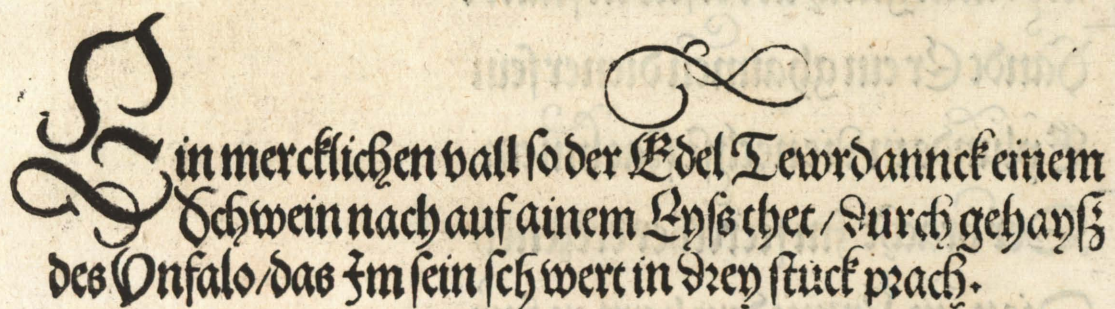 Ein mercklichen vall so der Edel Tewrdannck einem
Schwein nach auf ainem Eyss thet / durch gehaysz
des Unfalo / das Im sein schwert in drey stuck prach.